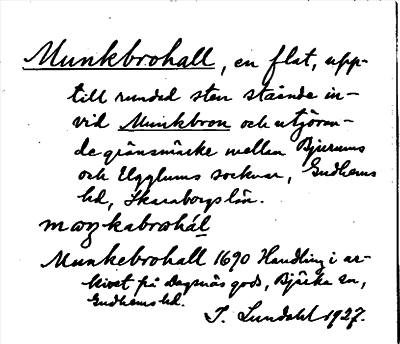 Munkbrohall, en flat, upp-
till rundad sten stående in-
vid Munkbron och utgöran-
de gränsmärke mellan Bjurums
och Ugglums socknar, Gudhems
hd, Skaraborgs län.
Munkebrohall 1690 Handling i ar-
kivet på Dagsnäs gods, Bjärka sn,
Gudhems hd.
I. Lundahl 1927.